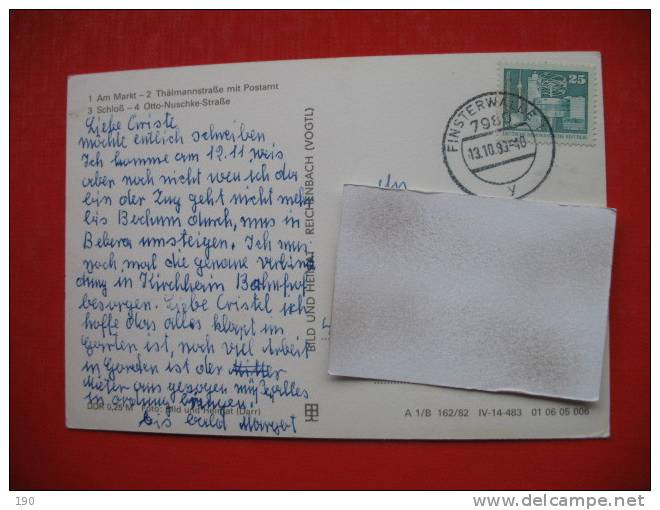 1 Am Markt – 2 Thälmannstraße mit Postamt
3 Schloß – 4 Otto-Nuschke-Straße
Liebe Criste
möchte entlich schreiben
Ich komme am 12.11 weis
aber noch nicht wen ich da
bin der Zug geht nicht mehr
bis Bochum durch, mus in
Bebera umsteigen. Ich mus
noch mal die genaue verbin
dung in Kirchheim Bahnhof
besorgen. Liebe Cristel ich
hoffe das alles klapt im
Garten ist, noch viel Arbeit
in Garden ist der
Mieter aus gezogen müß alles
in ordnung bringen!
bis bald Margot
DDR 0,25 M Foto: Bild und Heimat (Darr)
BILD UND HEIMAT REICHENBACH (VOGTL)
A 1/B 162/82 IV-14-483 01 06 05 006
25
FINSTERWALDE
7980
13.10.83
y
190
www.delcampe.net